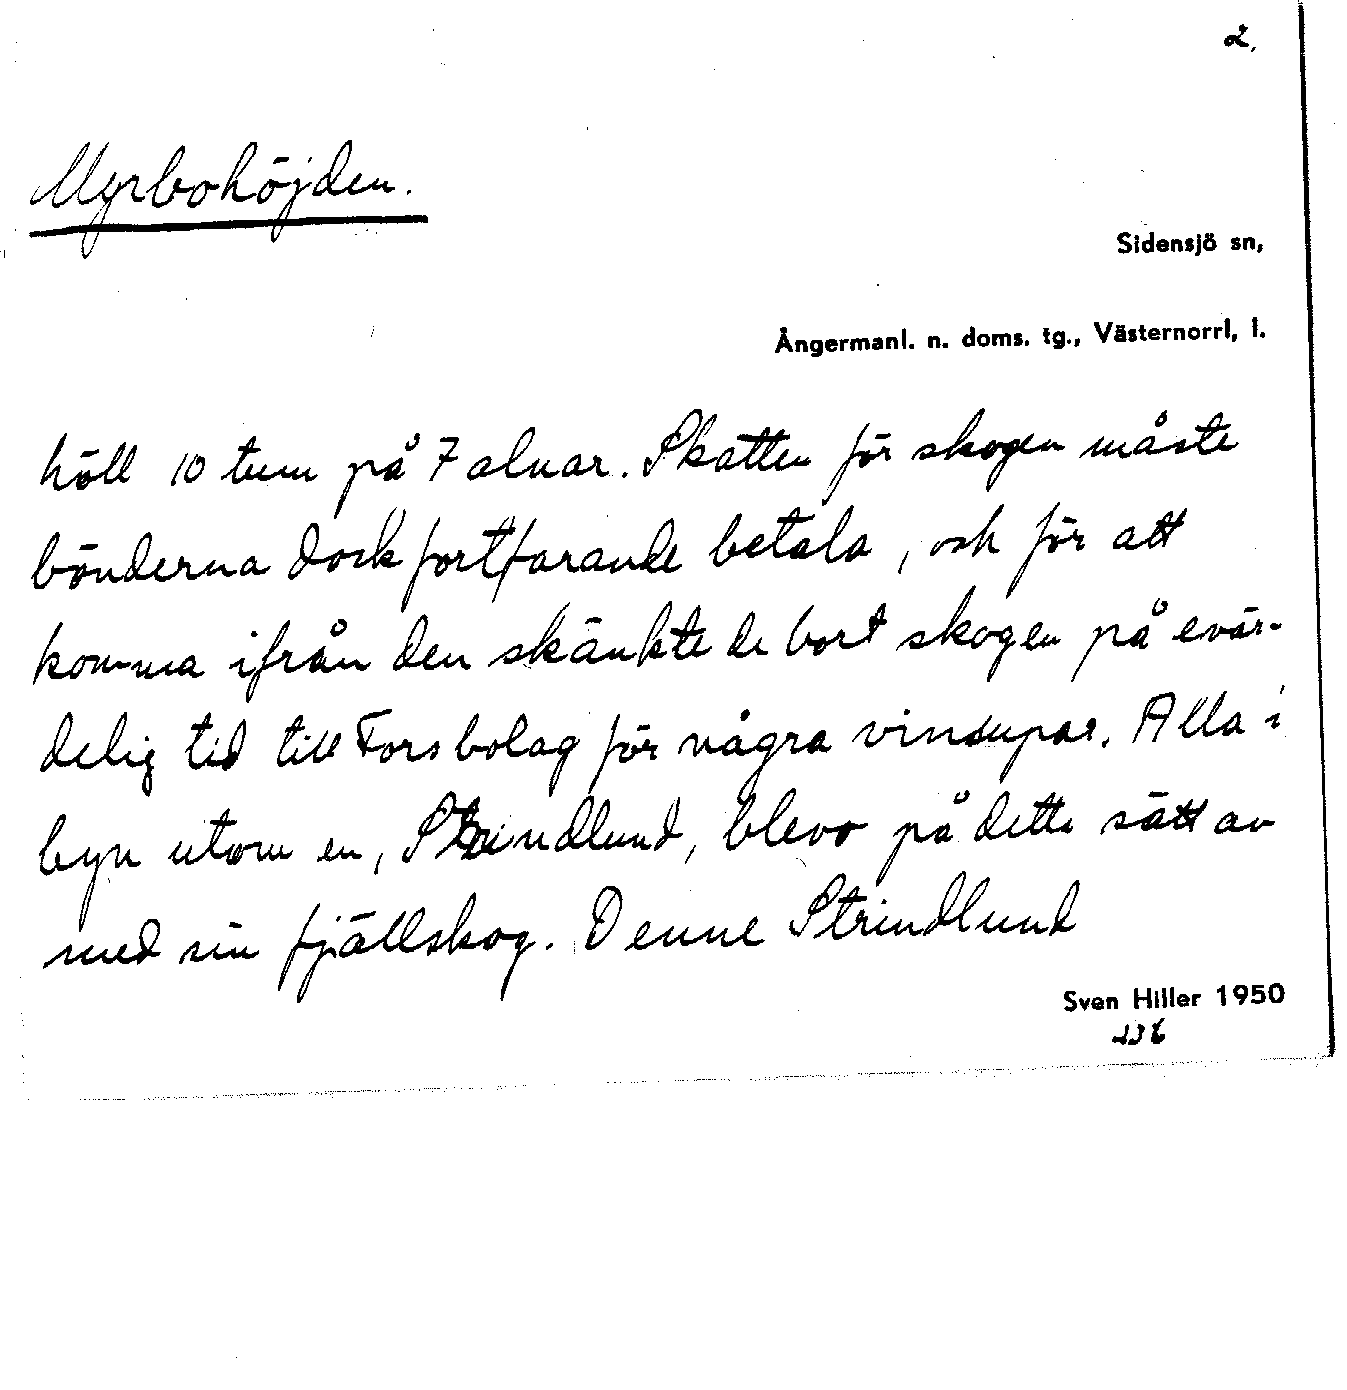 2.
Myrbohöjden.
Sidensjö sn,
Ångermanl. n. doms. tg., Västernorrl, l.
höll 10 tum på 7 alnar. Skatten för skogen måste
bönderna dock fortfarande betala, och för att
komma ifrån den skänkte de bort skogen på evär-
delig tid till Fors bolag för några vinsupar. Alla i
byn utom en, Strindlund, blevo på detta sätt av
med sin fjällskog. Denne Strindlund
Sven Hiller 1950
236